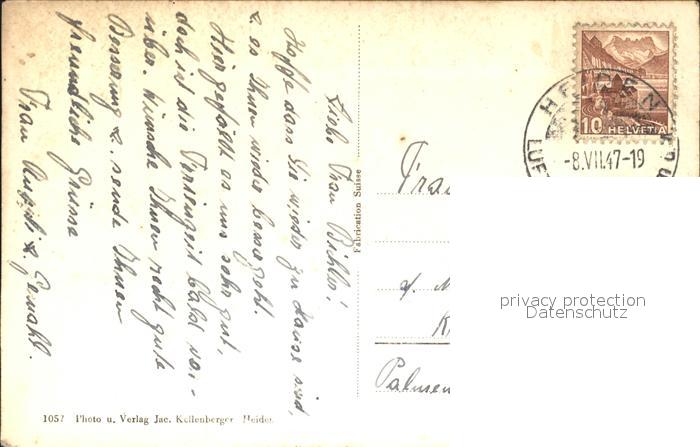 Liebe Frau Bichler!
Hoffe dass Sie wieder zu Hause sind,
& es Ihnen wieder besser geht.
Hier gefällt es uns sehr gut,
doch ist die Ferienzeit bald vor-
über. Wünsche Ihnen recht gute
Besserung & sende Ihnen
freundliche Grüsse
Frau & Gemahl.
Fabrication Suisse
1057 Photo u. Verlag Jac. Kellenberger Heiden
10 HELVETIA
HEIDEN
-8.VII.47-19
LUF
Frau
Palmen
privacy protection
Datenschutz